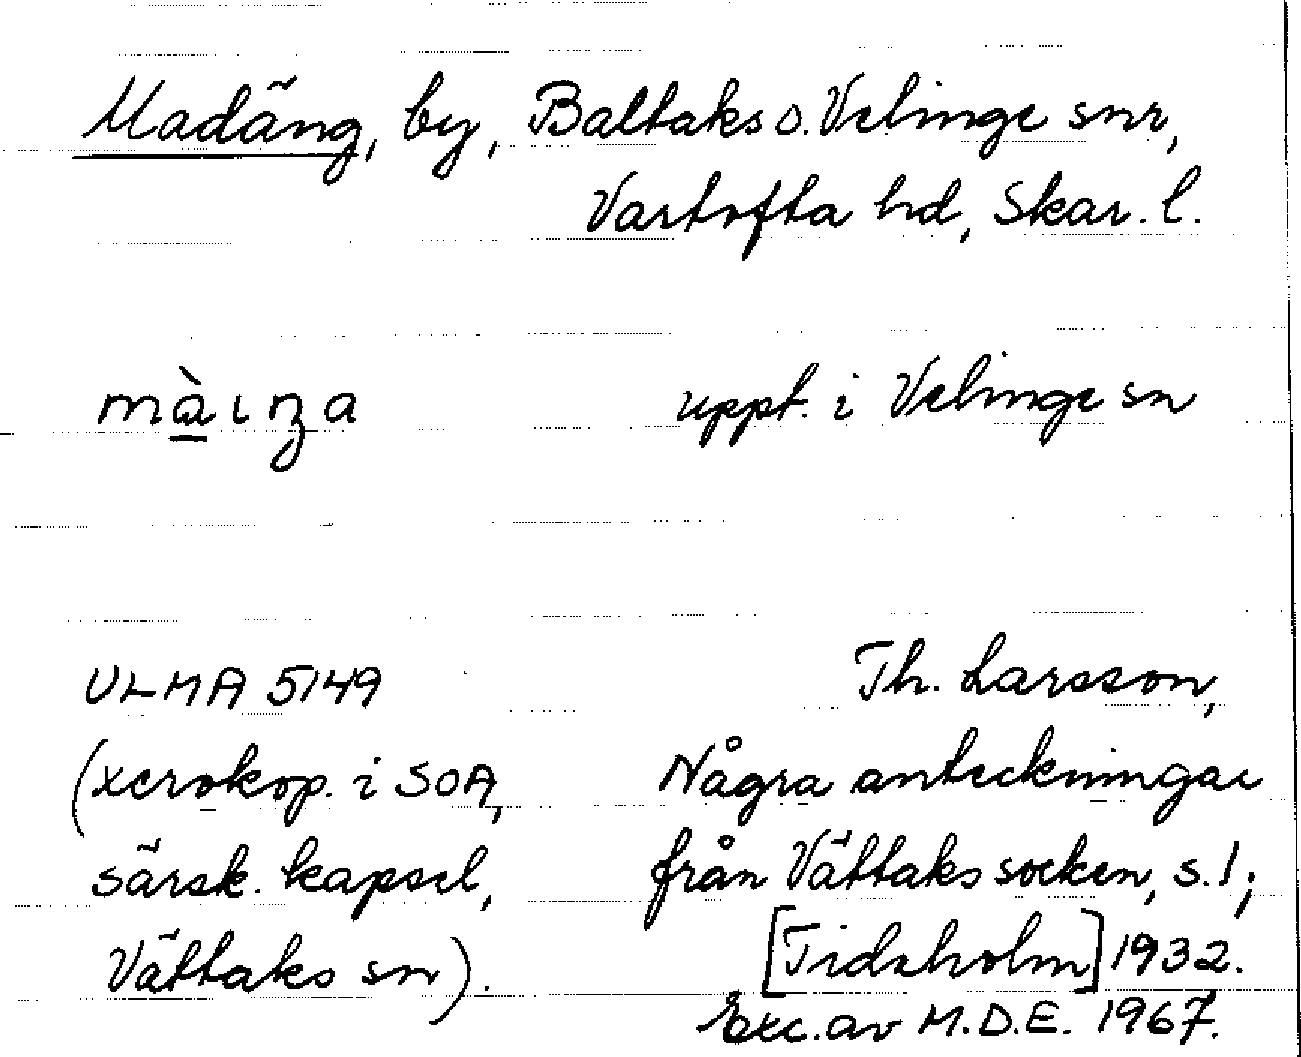 Madäng, by, Baltaks o. Velinge snr,
Vartofta hd, Skar. l.
uppt. i Velinge sn
ULMA 5149
(xerokop. i SOA,
särsk. kapsel,
Vättaks sn).
Th. Larsson,
Några anteckningar
från Vättaks socken, s. 1;
[Tidaholm] 1932.
Exc. av M.D.E. 1967.